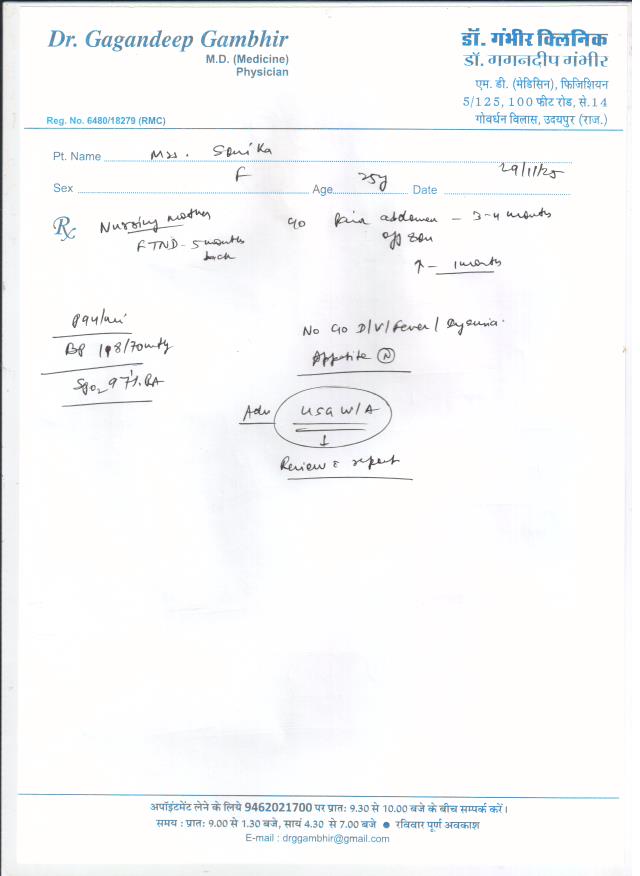 Dr. Gagandeep Gambhir
M.D. (Medicine)
Physician
Reg. No. 6480/18279 (RMC)
डॉ. गंभीर क्लिनिक
डॉ. गगनदीप गंभीर
एम. डी. (मेडिसिन), फिजिशियन
5/125, 100 फीट रोड, से.14
गोवर्धन विलास, उदयपुर (राज.)
Pt. Name Mrs.
Sex F Age 25y Date 29/11/25
Rx Nursing mother
FTND - 5 months
back
c/o Pain abdomen - 3-4 months
off & on
↑ - 1 months
P 94/min
BP 118/70 mmHg
SpO2 97% RA
No c/o D/V/Fever/
Appetite (N)
Adv USG W/A
↓
Review c̄ report
अपॉइंटमेंट लेने के लिये 9462021700 पर प्रातः 9.30 से 10.00 बजे के बीच सम्पर्क करें।
समय : प्रातः 9.00 से 1.30 बजे, सायं 4.30 से 7.00 बजे ● रविवार पूर्ण अवकाश
E-mail : drggambhir@gmail.com